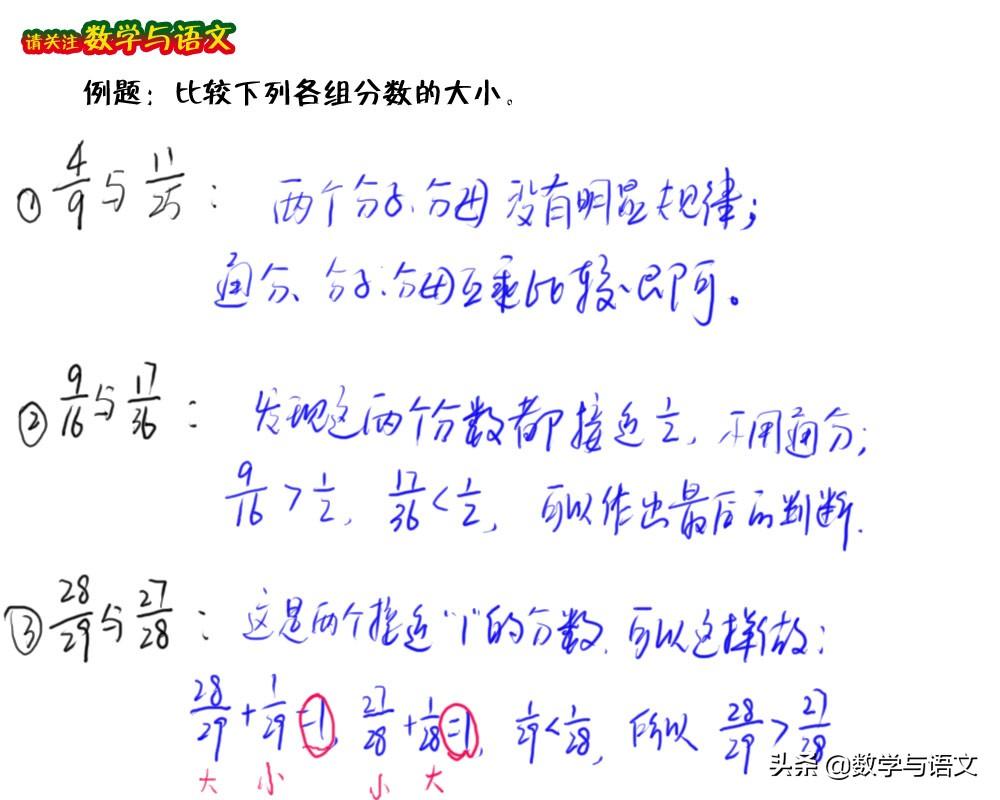 请关注 数学与语文
例题：比较下列各组分数的大小。
① 4/9 与 11/25： 两个分子、分母没有明显规律；
通分、分子、分母互乘比较即可。
② 9/16 与 17/36： 发现这两个分数都接近 1/2，不用通分；
9/16 > 1/2，17/36 < 1/2，可以作出最后的判断.
③ 28/29 与 27/28： 这是两个接近“1”的分数，可以这样做：
28/29 + 1/29 = 1，27/28 + 1/28 = 1，1/29 < 1/28，所以 28/29 > 27/28
大 小 小 大
头条 @数学与语文